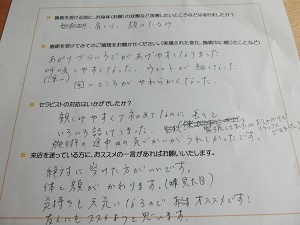 施術を受ける前に、お身体(お顔)の状態など改善したいところなどはありましたか?
肩こり、顔のたるみ
施術を受けてみてのご感想をお聞かせください(実感された変化、施術中に感じたことなど)
あがりづらいうでがあげやすくなりました。
呼吸しやすくなった。ウエストが細くなった
固いところがやわらかくなった。
セラピストの対応はいかがでしたか?
親しみやすくて初めてなのに
いろいろ話してしまった。
施術時の途中の気づかいがうれしかったです。
来店を迷っている方に、おススメの一言があればお願いいたします。
絶対に受けた方がいいです。
体と顔がかわります。(見た目)
気持ちも元気になるので オススメです!
友人にもススメようと思います。